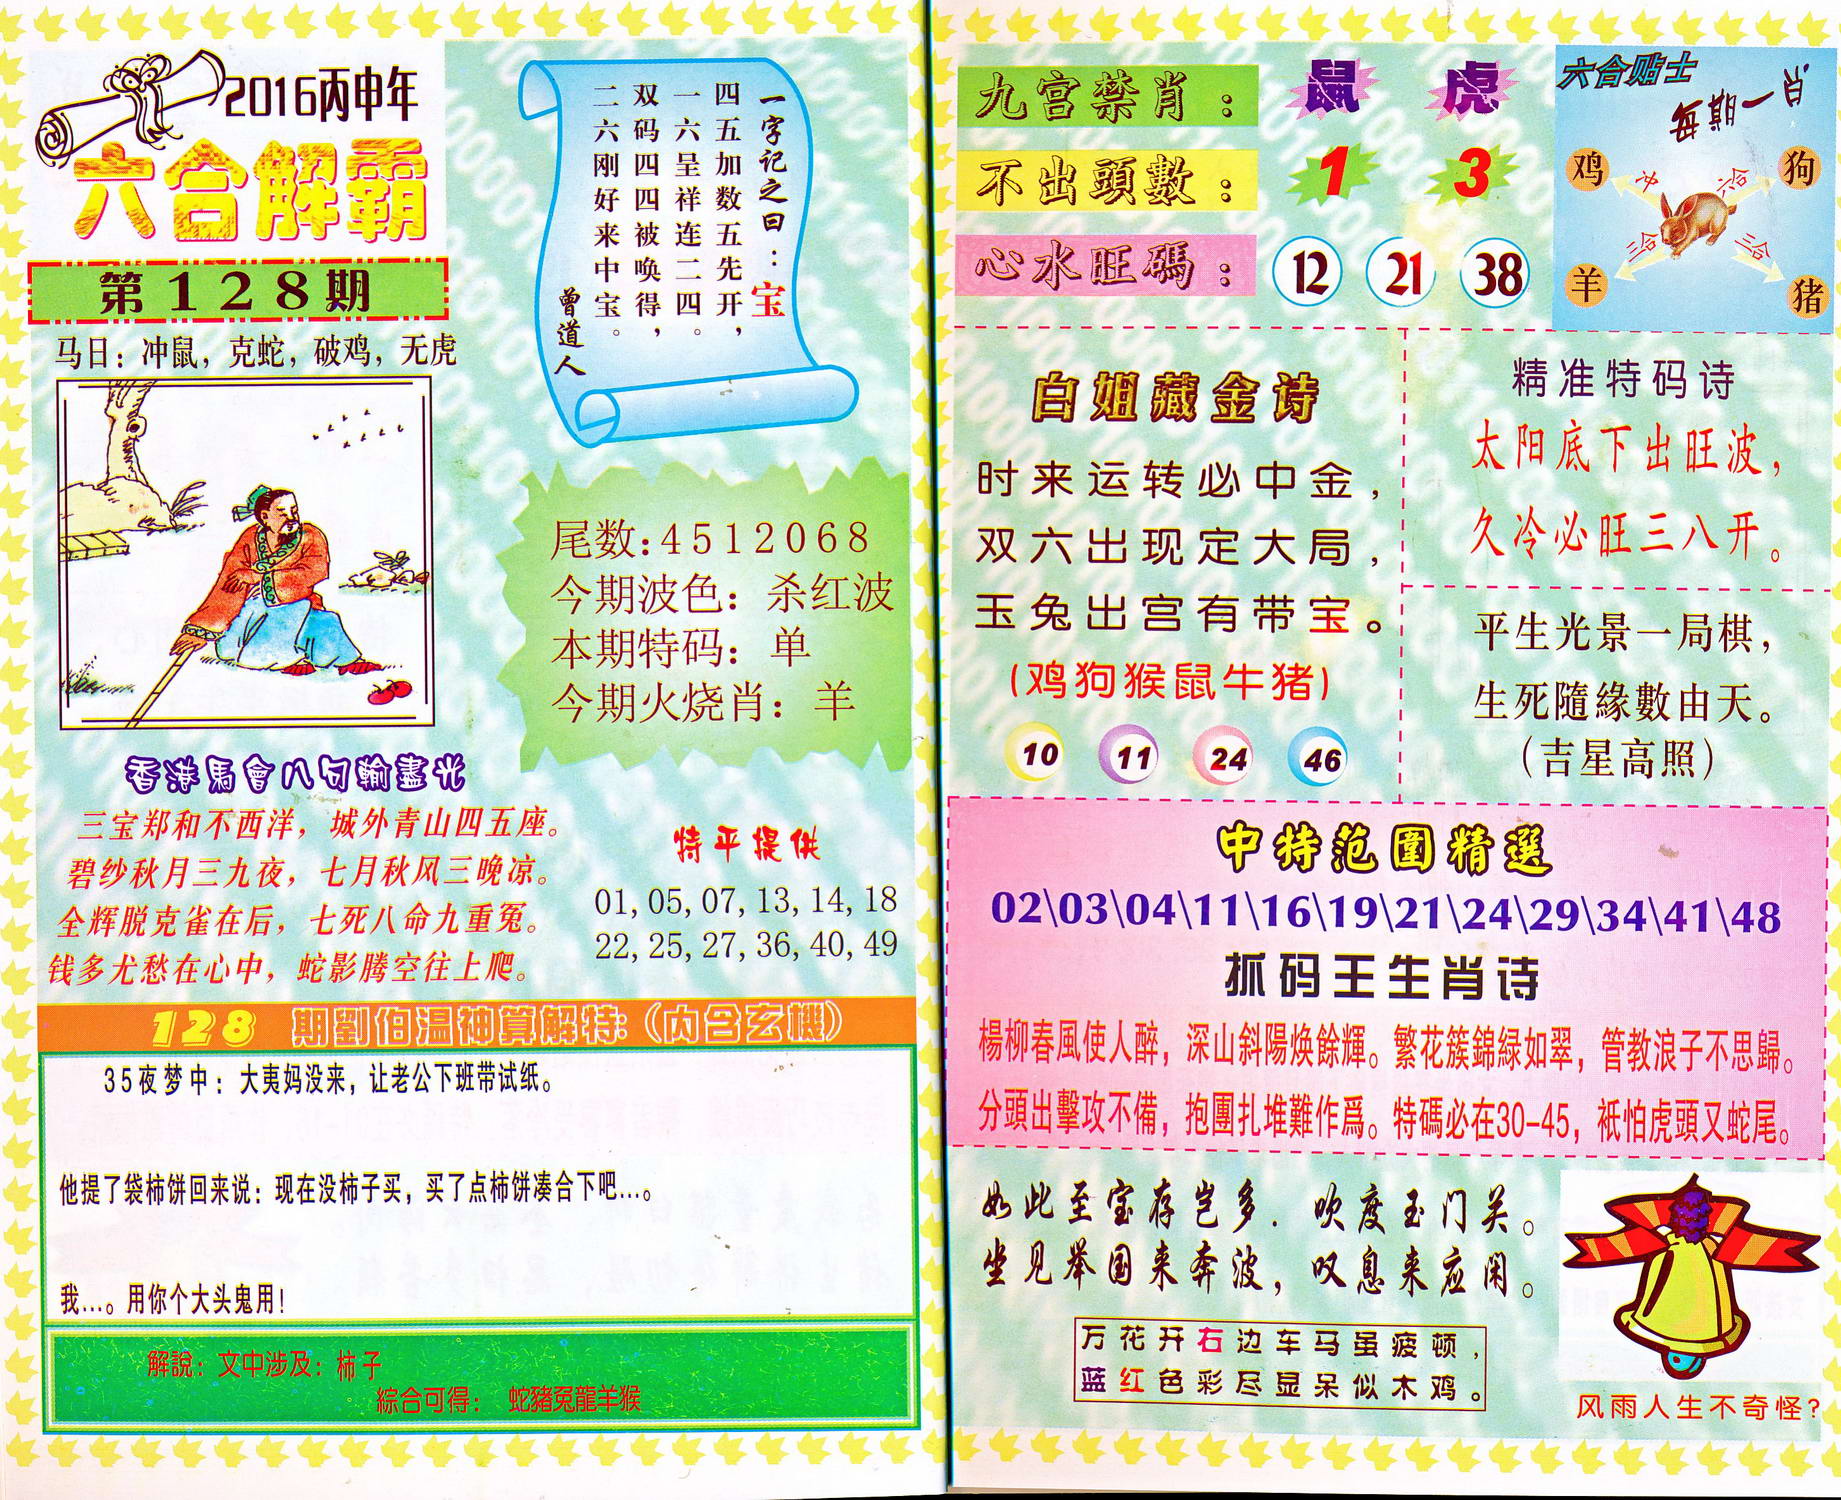 2016丙申年
六合解霸
第128期
马日：冲鼠，克蛇，破鸡，无虎
一字记之曰：宝
四五加数五先开，
一六呈祥连二四。
双码四四被唤得，
二六刚好来中宝。
曾道人
尾数：4512068
今期波色：杀红波
本期特码：单
今期火烧肖：羊
香港馬會八句輸盡光
三宝郑和不西洋，城外青山四五座。
碧纱秋月三九夜，七月秋风三晚凉。
全辉脱克雀在后，七死八命九重冤。
钱多尤愁在心中，蛇影腾空往上爬。
特平提供
01,05,07,13,14,18
22,25,27,36,40,49
128 期劉伯温神算解特：（内含玄機）
35夜梦中：大夷妈没来，让老公下班带试纸。
他提了袋柿饼回来说：现在没柿子买，买了点柿饼凑合下吧...。
我...。用你个大头鬼用！
解說：文中涉及：柿子
綜合可得： 蛇豬兔龍羊猴
九宫禁肖：鼠 虎
不出頭數：1 3
心水旺碼：12 21 38
六合贴士
每期一肖
鸡 冲 六合 狗
羊 三合 三合 猪
白姐藏金诗
时来运转必中金，
双六出现定大局，
玉兔出宫有带宝。
（鸡狗猴鼠牛猪）
10 11 24 46
精准特码诗
太阳底下出旺波，
久冷必旺三八开。
平生光景一局棋，
生死隨緣數由天。
（吉星高照）
中特范圍精選
02\03\04\11\16\19\21\24\29\34\41\48
抓码王生肖诗
楊柳春風使人醉，深山斜陽焕餘輝。繁花簇錦緑如翠，管教浪子不思歸。
分頭出擊攻不備，抱團扎堆難作爲。特碼必在30-45，祇怕虎頭又蛇尾。
如此至宝存岂多．吹度玉门关。
坐见举国来奔波，叹息来应闲。
万花开右边车马虽疲顿，
蓝红色彩尽显呆似木鸡。
风雨人生不奇怪？